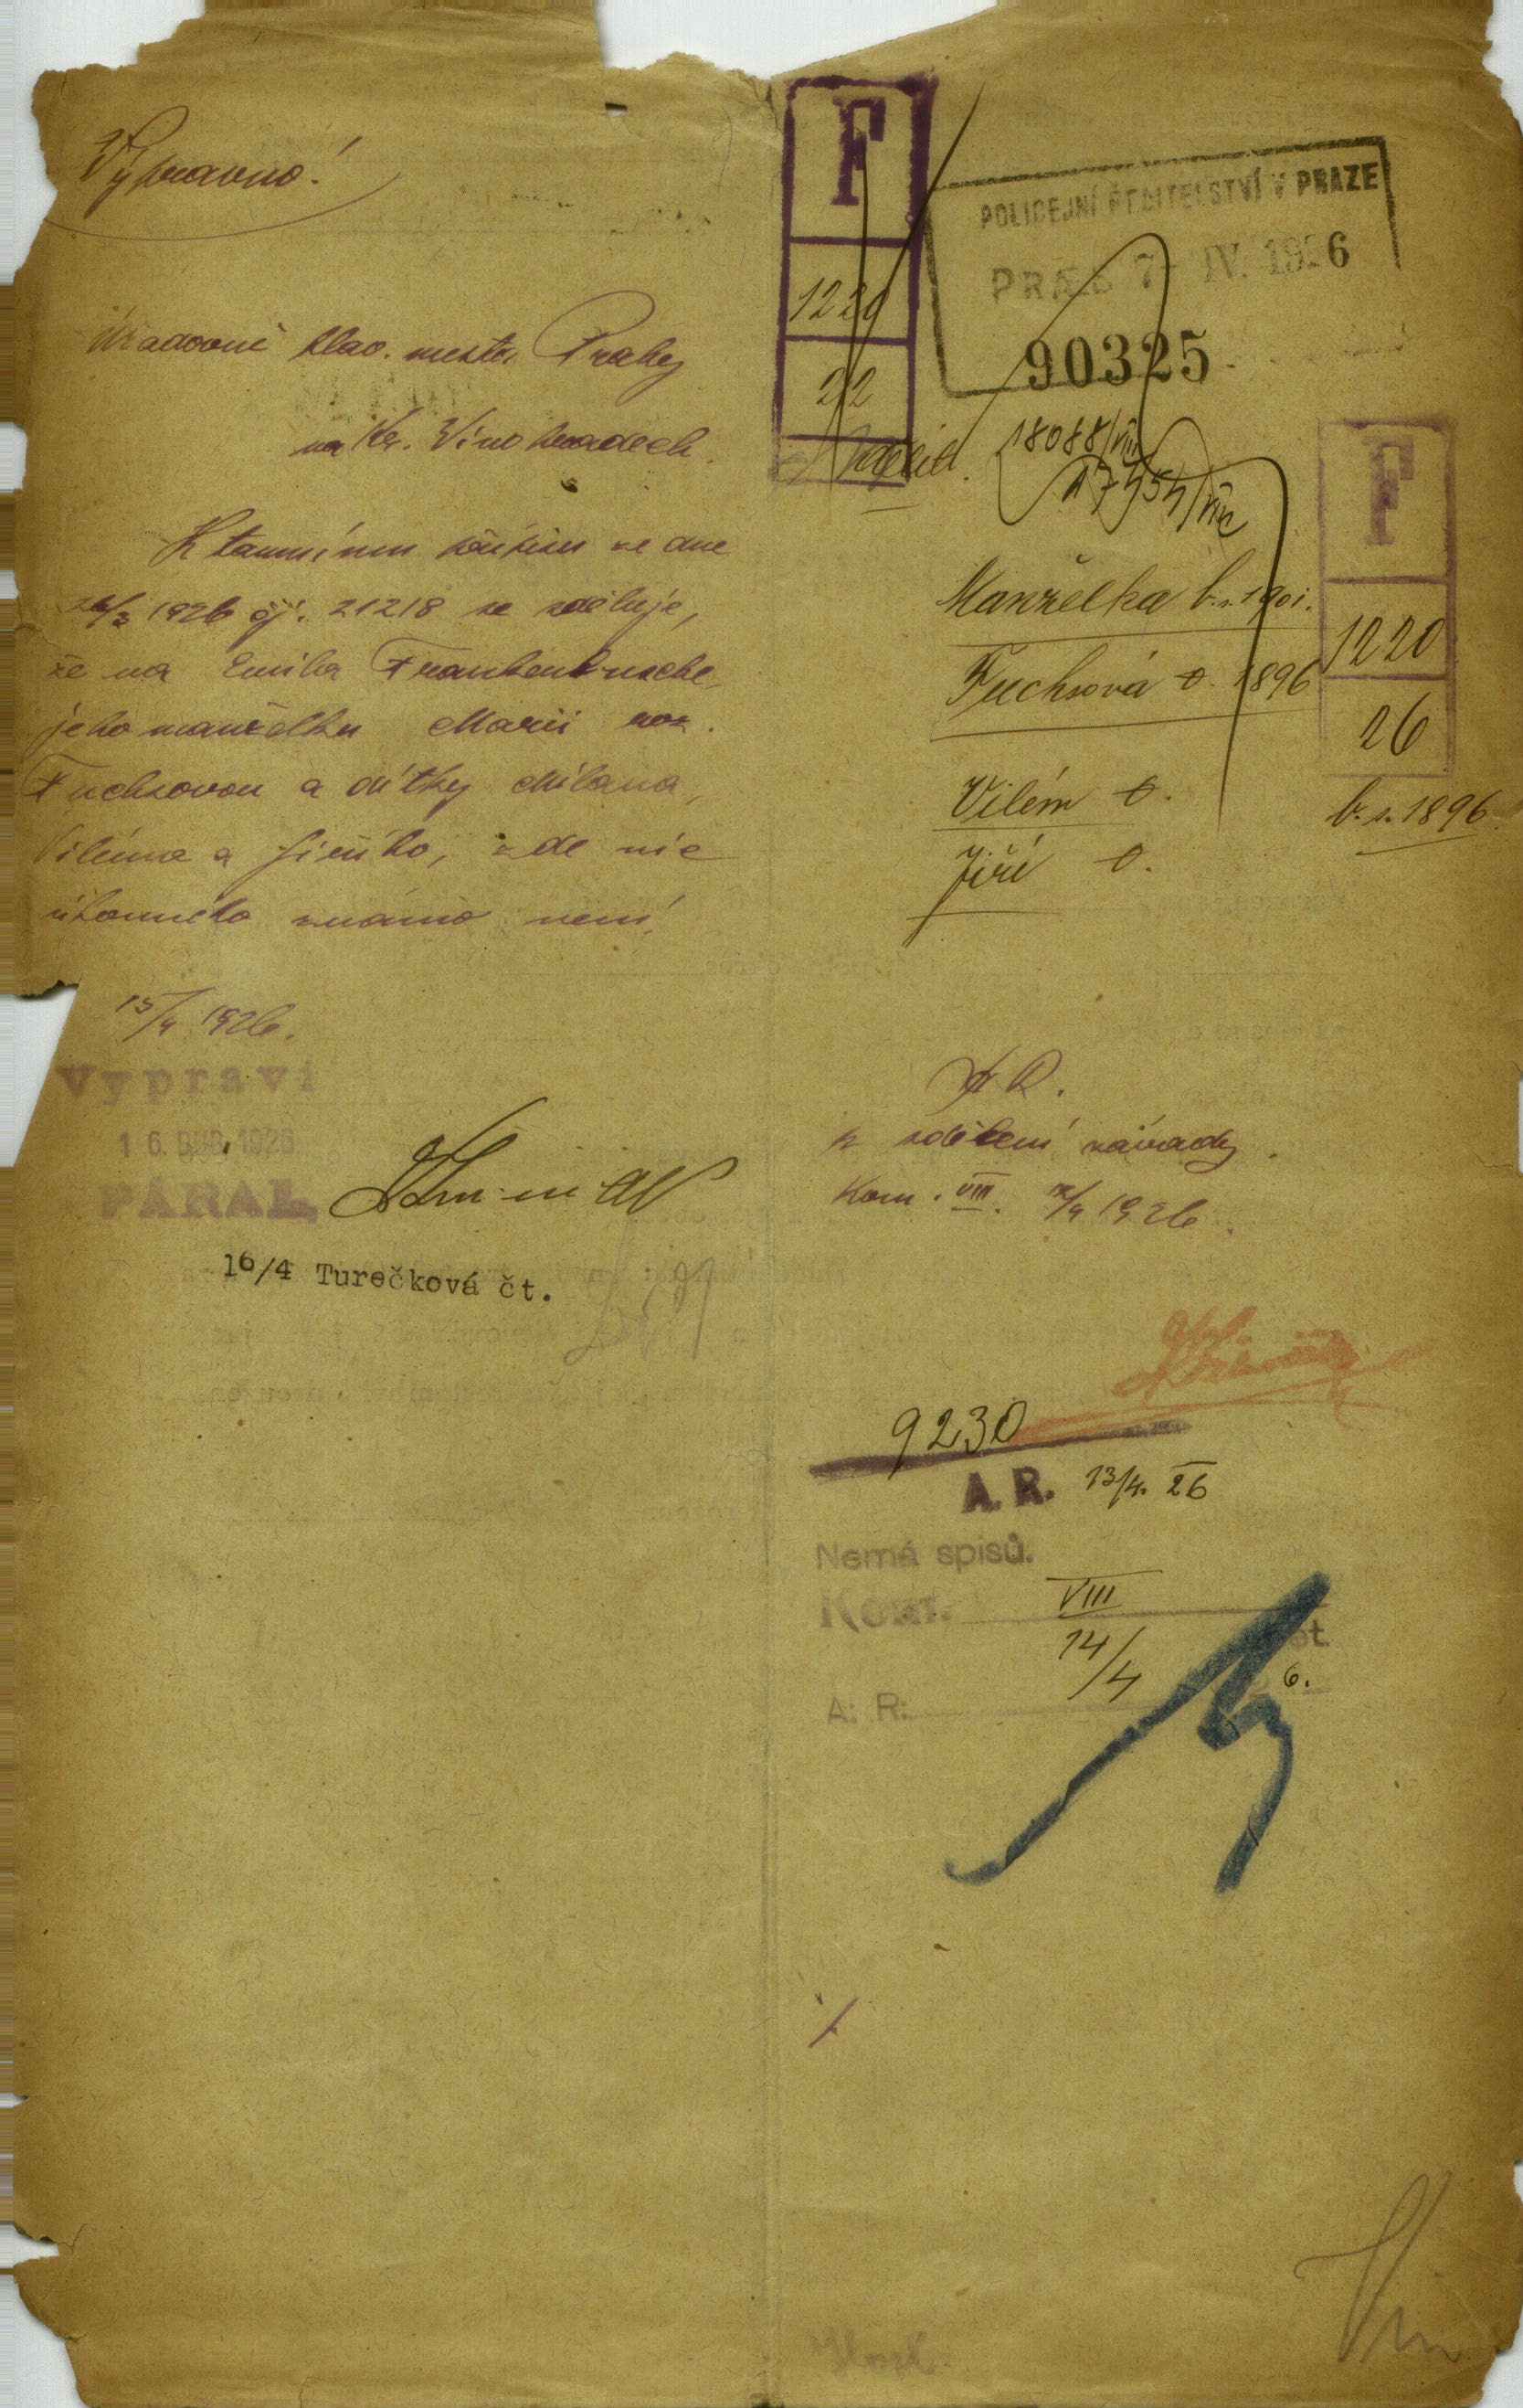 Výpravno!
Úřadovně hlav. města Prahy
na Kr. Vinohradech.
K tamnímu přípisu ze dne
26/3 1926 čj. 21218 se sděluje,
že na Emila Frankenbusche,
jeho manželku Marii roz.
Fuchsovou a dítky Milana,
Viléma a Jiřího, zde nic
úhonného známo není.
15/4 1926.
Vypraví
16. DUB. 1926
PÁRAL
16/4 Turečková čt.
F
1220
22
POLICEJNÍ ŘEDITELSTVÍ V PRAZE
7- IV. 1926
90325
18088/VIII
17454/VIII
F
1220
26
b.s. 1896
Manželka b.s. 1901.
Fuchsová 0. 1896
Vilém 0.
Jiří 0.
A R.
k sdělení závady.
Kom. VIII. 1926.
9230
A. R. 13/4. 26
Nemá spisů.
Kom. VIII
14/4 6.
A: R: